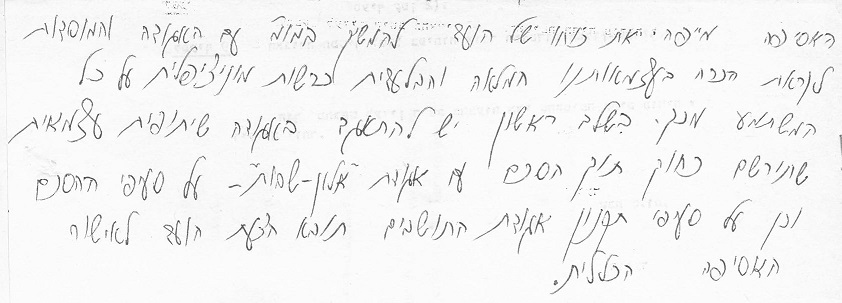 האסיפה מייפה את כוחו של הועד להמשיך במו"מ עם האגודה והמוסדות
לקראת הכרה בעצמאותנו המלאה והבלעדית כרשות מוניציפלית על כל
המשתמע מכך. בשלב ראשון יש להתאגד באגודה שיתופית עצמאית
שתירשם כחוק תוך הסכם עם אגודת "אלון-שבות" - על סעיפי ההסכם
וכן על סעיפי תקנון אגודת התושבים תובא הצעת הועד לאישור
האסיפה הכללית.